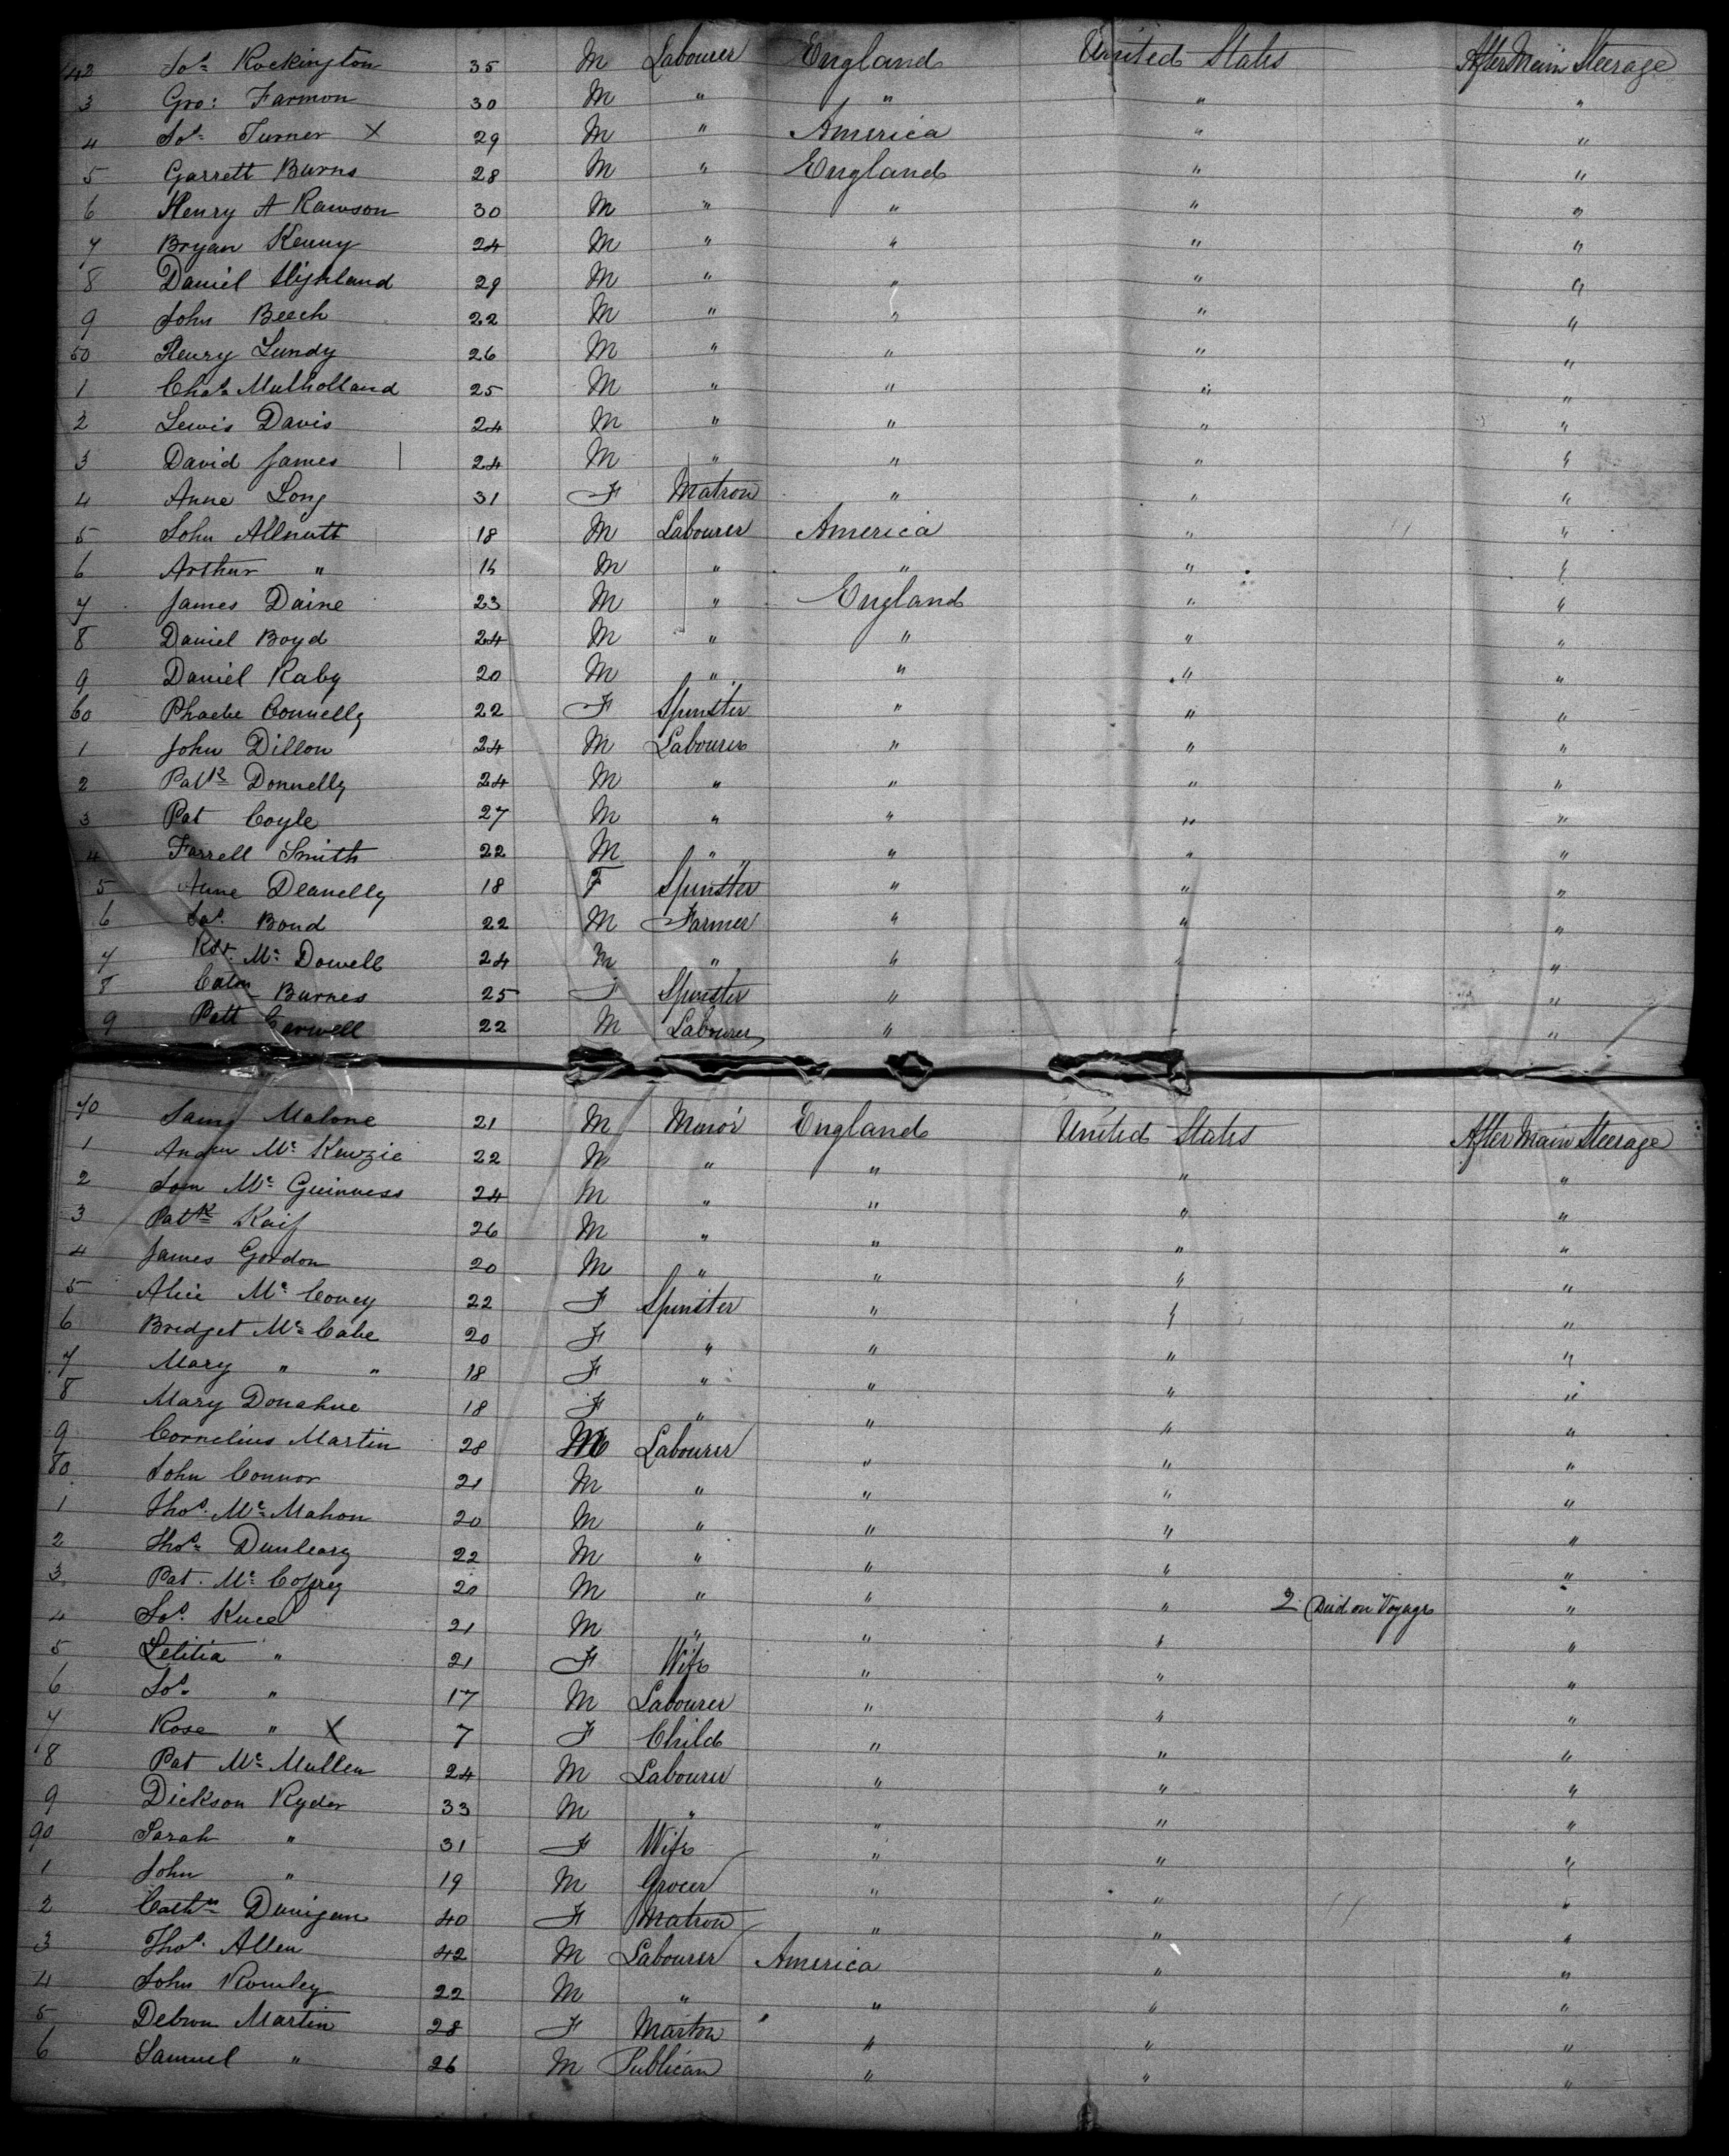 42 Jos. Rockington 35 M Labourer England United States After Main Steerage
3 Geo: Farmon 30 M " " " "
4 Jos. Turner X 29 M " America " "
5 Garrett Burns 28 M " England " "
6 Henry A Rawson 30 M " " " "
7 Bryan Kenny 24 M " " " "
8 Daniel Highland 29 M " " " "
9 John Beech 22 M " " " "
50 Henry Lundy 26 M " " " "
1 Chas. Mulholland 25 M " " " "
2 Lewis Davis 24 M " " " "
3 David James 24 M " " " "
4 Anne Long 31 F Matron " " "
5 John Allnutt 18 M Labourer America " "
6 Arthur " 16 M " " " "
7 James Daine 23 M " England " "
8 Daniel Boyd 24 M " " " "
9 Daniel Raby 20 M " " " "
60 Phoebe Connelly 22 F Spinster " " "
1 John Dillon 24 M Labourer " " "
2 Patk Donnelly 24 M " " " "
3 Pat Coyle 27 M " " " "
4 Farrell Smith 22 M " " " "
5 Anne Deanelly 18 F Spinster " " "
6 Jas. Bond 22 M Farmer " " "
7 Robt. Mc Dowell 24 M " " " "
8 Cath Burnes 25 F Spinster " " "
9 Patt Carwell 22 M Labourer " " "
70 Saml Malone 21 M England United States After Main Steerage
1 Andrew Mc Kenzie 22 M " " " "
2 Mc Guinness 24 M " " " "
3 Patk 26 M " " " "
4 James Gordon 20 M " " " "
5 Alice Mc Coney 22 F Spinster " " "
6 Bridget Mc Cabe 20 F " " " "
7 Mary " " 18 F " " " "
8 Mary Donahue 18 F " " " "
9 Cornelius Martin 28 M Labourer " " "
80 John Connor 21 M " " " "
1 Thos. Mc Mahon 20 M " " " "
2 Thos. Dunleary 22 M " " " "
3 Pat. Mc Coffrey 20 M " " " 2 Died on Voyage "
4 Jos. 21 M " " " "
5 Letitia " 21 F Wife " " "
6 Jos. " 17 M Labourer " " "
7 Rose " X 7 F Child " " "
8 Pat Mc Mullen 24 M Labourer " " "
9 Dickson Ryder 33 M " " " "
90 Sarah " 31 F Wife " " "
1 John " 19 M Grocer " " "
2 Cathn Dunigan 40 F Matron " " "
3 Thos. Allen 42 M Labourer America " "
4 John Rowley 22 M " " " "
5 Martin 28 F Marton " " "
6 Samuel " 26 M Publican " " "